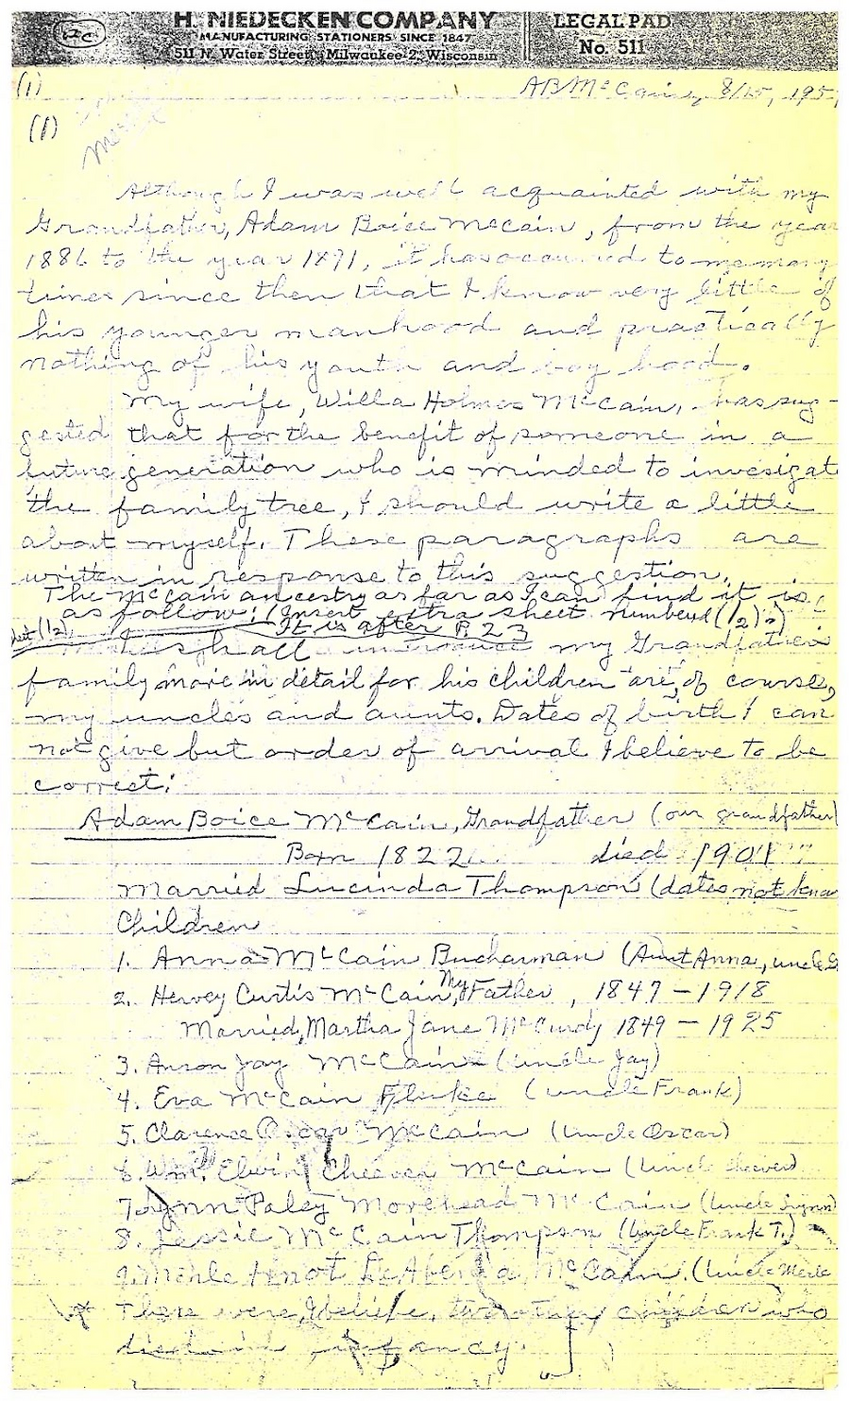 H. NIEDECKEN COMPANY
MANUFACTURING STATIONERS SINCE 1847
511 N. Water Street, Milwaukee 2, Wisconsin
LEGAL PAD
No. 511
(1)
ABMcCain, 8/15, 195
(1)
Although I was well acquainted with my
Grandfather, Adam Boice McCain, from the year
1886 to the year 1891, it has occurred to me many
times since then that I know very little of
his younger manhood and practically
nothing of his youth and boy hood.
My wife, Willa Holmes McCain, has sug-
gested that for the benefit of someone in a
future generation who is minded to invesigate
the family tree, I should write a little
about myself. These paragraphs are
written in response to this suggestion.
The McCain ancestry as far as I can find it is
as follow: (Insert extra sheet numbered (1/2).)
It is after P. 23
(1/2)
I shall introduce my Grandfather's
family more in detail for his children are, of course,
my uncles and aunts. Dates of birth I can
not give but order of arrival I believe to be
correct:
Adam Boice McCain, Grandfather (our grandfather)
Born 1822 died 1901
Married Lucinda Thompson (dates not know
Children
1. Anna McCain Bucharman (Aunt Anna, uncle
2. Hervey Curtis McCain, My Father, 1847 - 1918
Married, Martha Jane McCurdy 1849 - 1925
3. Anson Jay McCain (Uncle Jay)
4. Eva McCain Fluke (uncle Frank)
5. Clarence Oscar McCain (Uncle Oscar)
6. Wm. Elwin Cheever McCain (Uncle Cheever)
7. Lynn Paley Morehead McCain (Uncle Lynn)
8. Jessie McCain Thompson (Uncle Frank T.)
9. Merle McCain. (Uncle Merle
There were, I believe, two other children who
died in infancy.